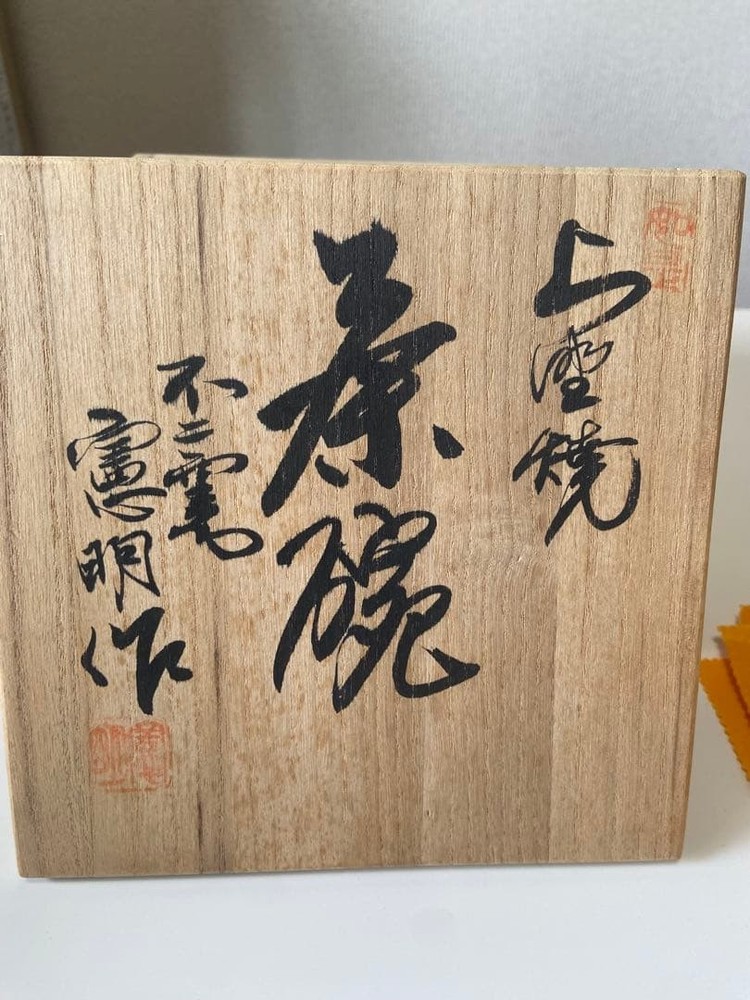 上焼
茶碗
不二
憲明作